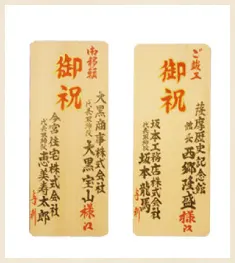 ご竣工
御祝
薩摩歴史記念館
館長 西郷隆盛様江
坂本工務店
代表取締役
坂本龍馬
与利
御移転
御祝
大黒商事株式会社
代表取締役
大黒宝山様江
今宮住宅株式会社
代表取締役
恵美寿太郎
与利